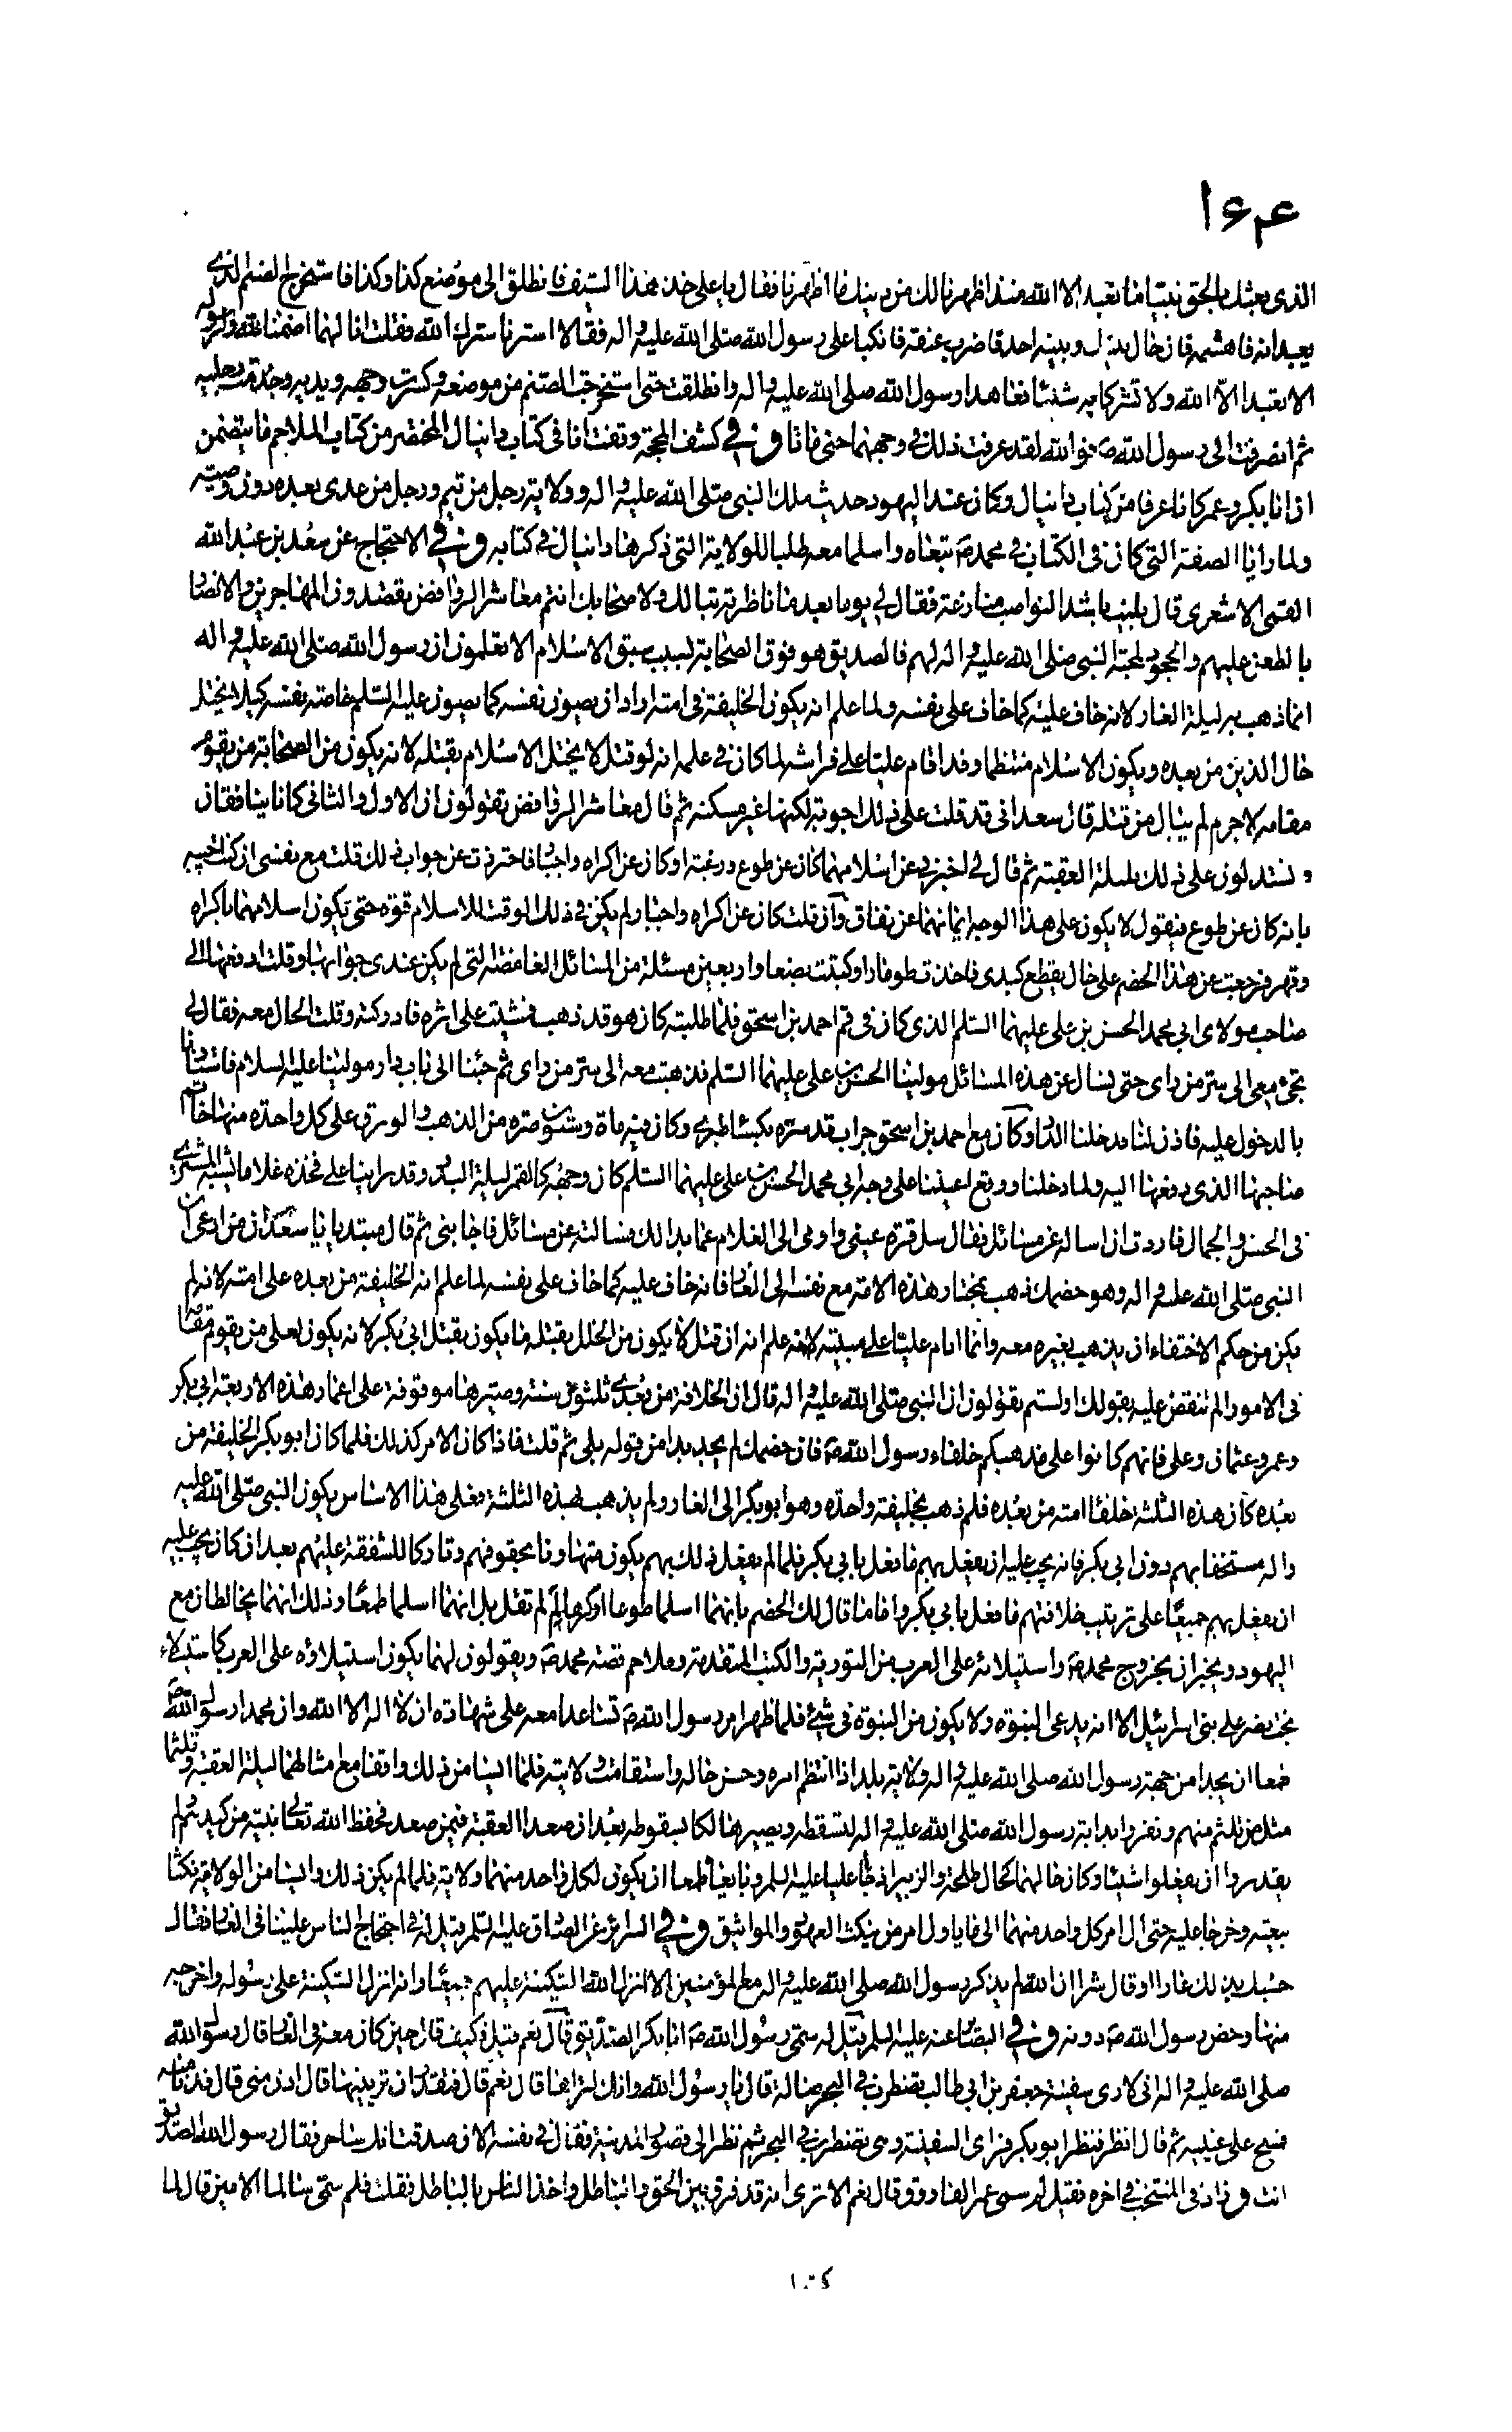 ١۶۴
الذى بعثك بالحق نبيا ما نعبد الا الله منذ اظهرنا لك من دينك ما اظهرنا فقال يا على خذ هذا السيف فانطلق الى موضع كذا وكذا فاستخرج الصنم الذى
يعبدانه فاهشمه فان حال بينك وبينه احد فاضرب عنقه فانكبا على رسول الله صلى الله عليه واله فقالا استرنا سترك الله فقلت انا لهما اضمنا لله ولرسوله
الا تعبدا الا الله ولا تشركا به شيئا فعاهدا رسول الله صلى الله عليه واله وانطلقت حتى استخرجت الصنم من موضعه وكسرت وجهه ويديه وجذمت رجليه
ثم انصرفت الى رسول الله ص فوالله لقد عرفت ذلك فى وجههما حتى ماتا وفى كشف المحجة وقفت انا فى كتاب دانيال المختصر من كتاب الملاحم ما يتضمن
ان ابا بكر وعمر كانا عرفا من كتاب دانيال وكان عند اليهود حديث ملك النبى صلى الله عليه واله وولاية رجل من تيم ورجل من عدى بعده دون وصيه
ولما رايا الصفة التى كان فى الكتاب فى محمد ص تبعاه واسلما معه طلبا للولاية التى ذكرها دانيال فى كتابه وفى الاحتجاج عن سعد بن عبد الله
القمى الاشعرى قال بليت باشد النواصب منازعة فقال لى يوما بعد ما ناظرته تبا لك ولاصحابك انتم معاشر الروافض تقصدون المهاجرين والانصار
بالطعن عليهم والجحود لمحبة النبى صلى الله عليه واله لهم فالصديق هو فوق الصحابة بسبب سبق الاسلام الا تعلمون ان رسول الله صلى الله عليه واله
انما ذهب به ليلة الغار لانه خاف عليه كما خاف على نفسه ولما علم انه يكون الخليفة فى امته واراد ان يصون نفسه كما يصون عليه السلم خاصة نفسه كيلا يختل
حال الدين من بعده ويكون الاسلام منتظما وقد اقام عليا على فراشه لما كان فى علمه انه لو قتل لا يختل الاسلام بقتله لانه يكون من الصحابة من يقوم
مقامه لا جرم لم يبال من قتله قال سعد انى قد قلت على ذلك اجوبة لكنها غير مسكتة ثم قال معاشر الروافض تقولون ان الاول والثانى كانا ينافقان
وتستدلون على ذلك بليلة العقبة ثم قال لى اخبرنى عن اسلامهما كان عن طوع ورغبة او كان عن اكراه واجبار فاحترزت عن جواب ذلك قلت مع نفسى ان كنت اجيبه
بانه كان عن طوع فيقول لا يكون على هذا الوجه ايمانهما عن نفاق وان قلت كان عن اكراه واجبار ولم يكن فى ذلك الوقت للاسلام قوة حتى يكون اسلامهما باكراه
وقهر فرجعت عن هذا الخصم على حال يقطع كبدى فاخذت طومارا وكتبت بضعا واربعين مسئلة من المسائل الغامضة التى لم يكن عندى جوابها وقلت ادفعها الى
صاحب مولاى ابى محمد الحسن بن على عليهما السلم الذى كان فى قم احمد بن اسحق فلما طلبته كان هو قد ذهب فمشيت على اثره فادركته وقلت الحال معه فقال لى
تجئ معى الى سر من راى حتى نسال عن هذه المسائل مولينا الحسن بن على عليهما السلم فذهبت معه الى سر من راى ثم جئنا الى باب دار مولينا عليه السلام فاستاذنا
بالدخول عليه فاذن لنا فدخلنا الدار وكان مع احمد بن اسحق جراب قد ستره بكساء طبرى وكان فيه مأة وستون صرة من الذهب والورق على كل واحدة منها خاتم
صاحبها الذى دفعها اليه ولما دخلنا ووقع اعيننا على وجه ابى محمد الحسن بن على عليهما السلم كان وجهه كالقمر ليلة البدر وقد راينا على فخذه غلاما يشبه المشترى
فى الحسن والجمال فاردت ان اساله عن مسائل فقال سل قرة عينى واومى الى الغلام عما بدا لك فسالته عن مسائل فاجابنى ثم قال مبتديا يا سعد ان من ادعى ان
النبى صلى الله عليه واله وهو خصمك ذهب بمختار هذه الامة مع نفسه الى الغار فانه خاف عليه كما خاف على نفسه لما علم انه الخليفة من بعده على امته لانه لم
يكن من حكم الاختفاء ان يذهب بغيره معه وانما انام عليا على مبيته لانه علم انه ان قتل لا يكون من الخلل بقتله ما يكون بقتل ابى بكر لانه يكون لعلى من يقوم مقامه
فى الامور الم تنقض عليه بقولك اولستم تقولون ان النبى صلى الله عليه واله قال ان الخلافة من بعدى ثلثون سنة وصيرها موقوفة على اعمار هذه الاربعة ابى بكر
وعمر وعثمان وعلى فانهم كانوا على مذهبكم خلفاء رسول الله ص فان خصمك لم يجد بدا من قوله بلى ثم قلت فاذا كان الامر كذلك فلما كان ابو بكر الخليفة من
بعده كان هذه الثلثة خلفاء امته من بعده فلم ذهب بخليفة واحدة وهو ابو بكر الى الغار ولم يذهب بهذه الثلثة فعلى هذا الاساس يكون النبى صلى الله عليه
واله مستخفا بهم دون ابى بكر فانه يجب عليه ان يفعل بهم ما فعل بابى بكر فلما لم يفعل ذلك بهم يكون متهاونا بحقوقهم وتاركا للشفقة عليهم بعد ان كان يجب عليه
ان يفعل بهم جميعا على ترتيب خلافتهم ما فعل بابى بكر واما ما قال لك الخصم بانهما اسلما طوعا او كرها لم لم تقل بل انهما اسلما طمعا وذلك انهما يخالطان مع
اليهود ويخبران بخروج محمد ص واستيلائه على العرب من التورية والكتب المتقدمة وملاحم قصة محمد ص ويقولون لهما يكون استيلاؤه على العرب كاستيلاء
بخت نصر على بنى اسرائيل الا انه يدعى النبوة ولا يكون من النبوة فى شئ فلما ظهر امر رسول الله ص تساعدا معه على شهادة ان لا اله الا الله وان محمدا رسول الله ص
طمعا ان يجدا من جهة رسول الله صلى الله عليه واله ولاية بلد اذا انتظم امره وحسن حاله واستقامت ولايته فلما ايسا من ذلك وافقا مع امثالهما ليلة العقبة وتلثما
مثل من تلثم منهم ونفروا بدابة رسول الله صلى الله عليه واله لتسقطه ويصير هالكا بسقوطه بعد ان صعد العقبة فيمن صعد فحفظ الله تعالى نبيه من كيدهم ولم
يقدروا ان يفعلوا شيئا وكان حالهما كحال طلحة والزبير اذ جاءا عليا عليه السلم وبايعا طمعا ان يكون لكل واحد منهما ولاية فلما لم يكن ذلك وايسا من الولاية نكثا
بيعته وخرجا عليه حتى ال امر كل واحد منهما الى ما يؤل امر من ينكث العهود والمواثيق وفى السرائر عن الصادق عليه السلم قيل له فى احتجاج الناس علينا فى الغار فقال
حسبك بذلك عارا او قال شرا ان الله لم يذكر رسول الله صلى الله عليه واله مع المؤمنين الا انزل الله السكينة عليهم جميعا وانه انزل السكينة على رسوله واخرجه
منها وخص رسول الله ص دونه وفى البصائر عنه عليه السلم قيل له سمى رسول الله ص ابا بكر الصديق قال نعم قيل فكيف قال حين كان معه فى الغار قال رسول الله
صلى الله عليه واله انى لارى سفينة جعفر بن ابى طالب تضطرب فى البحر ضالة قال يا رسول الله وانك لتراها قال نعم قال فتقدر ان ترينيها قال ادن منى قال فدنا منه
فمسح على عينيه ثم قال انظر فنظر ابو بكر فراى السفينة وهى تضطرب فى البحر ثم نظر الى قصور المدينة فقال فى نفسه الان صدقت انك ساحر فقال رسول الله الصديق
انت وزاد فى المنتخب فى اخره فقيل لم سمى عمر الفاروق قال نعم الا ترى انه قد فرق بين الحق والباطل واخذ الناس بالباطل فقلت فلم سمى سالما الامين قال لما